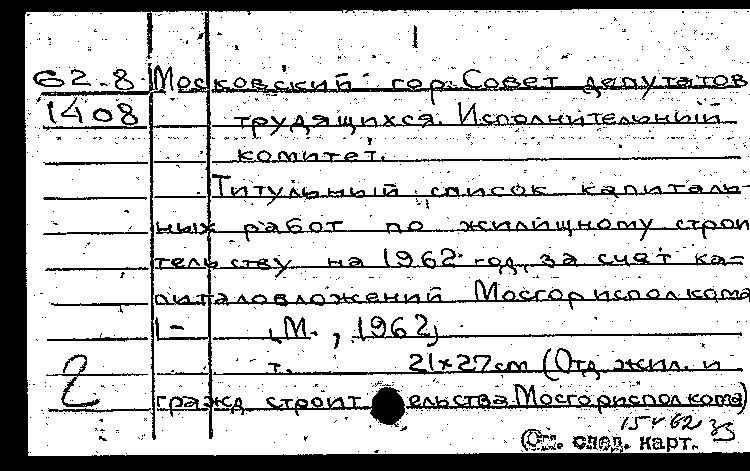 62-8 Московский гор. Совет депутатов
1408 трудящихся. Исполнительный
комитет.
Титульный список капиталь-
ных работ по жилищному строи
тельству на 1962 год, за счет ка-
питаловложений Мосгорисполкома
1- [М., 1962]
т. 21×27см (Отд. жил. и
2 гражд строит ельства Мосгорисполкома)
См. след. карт.